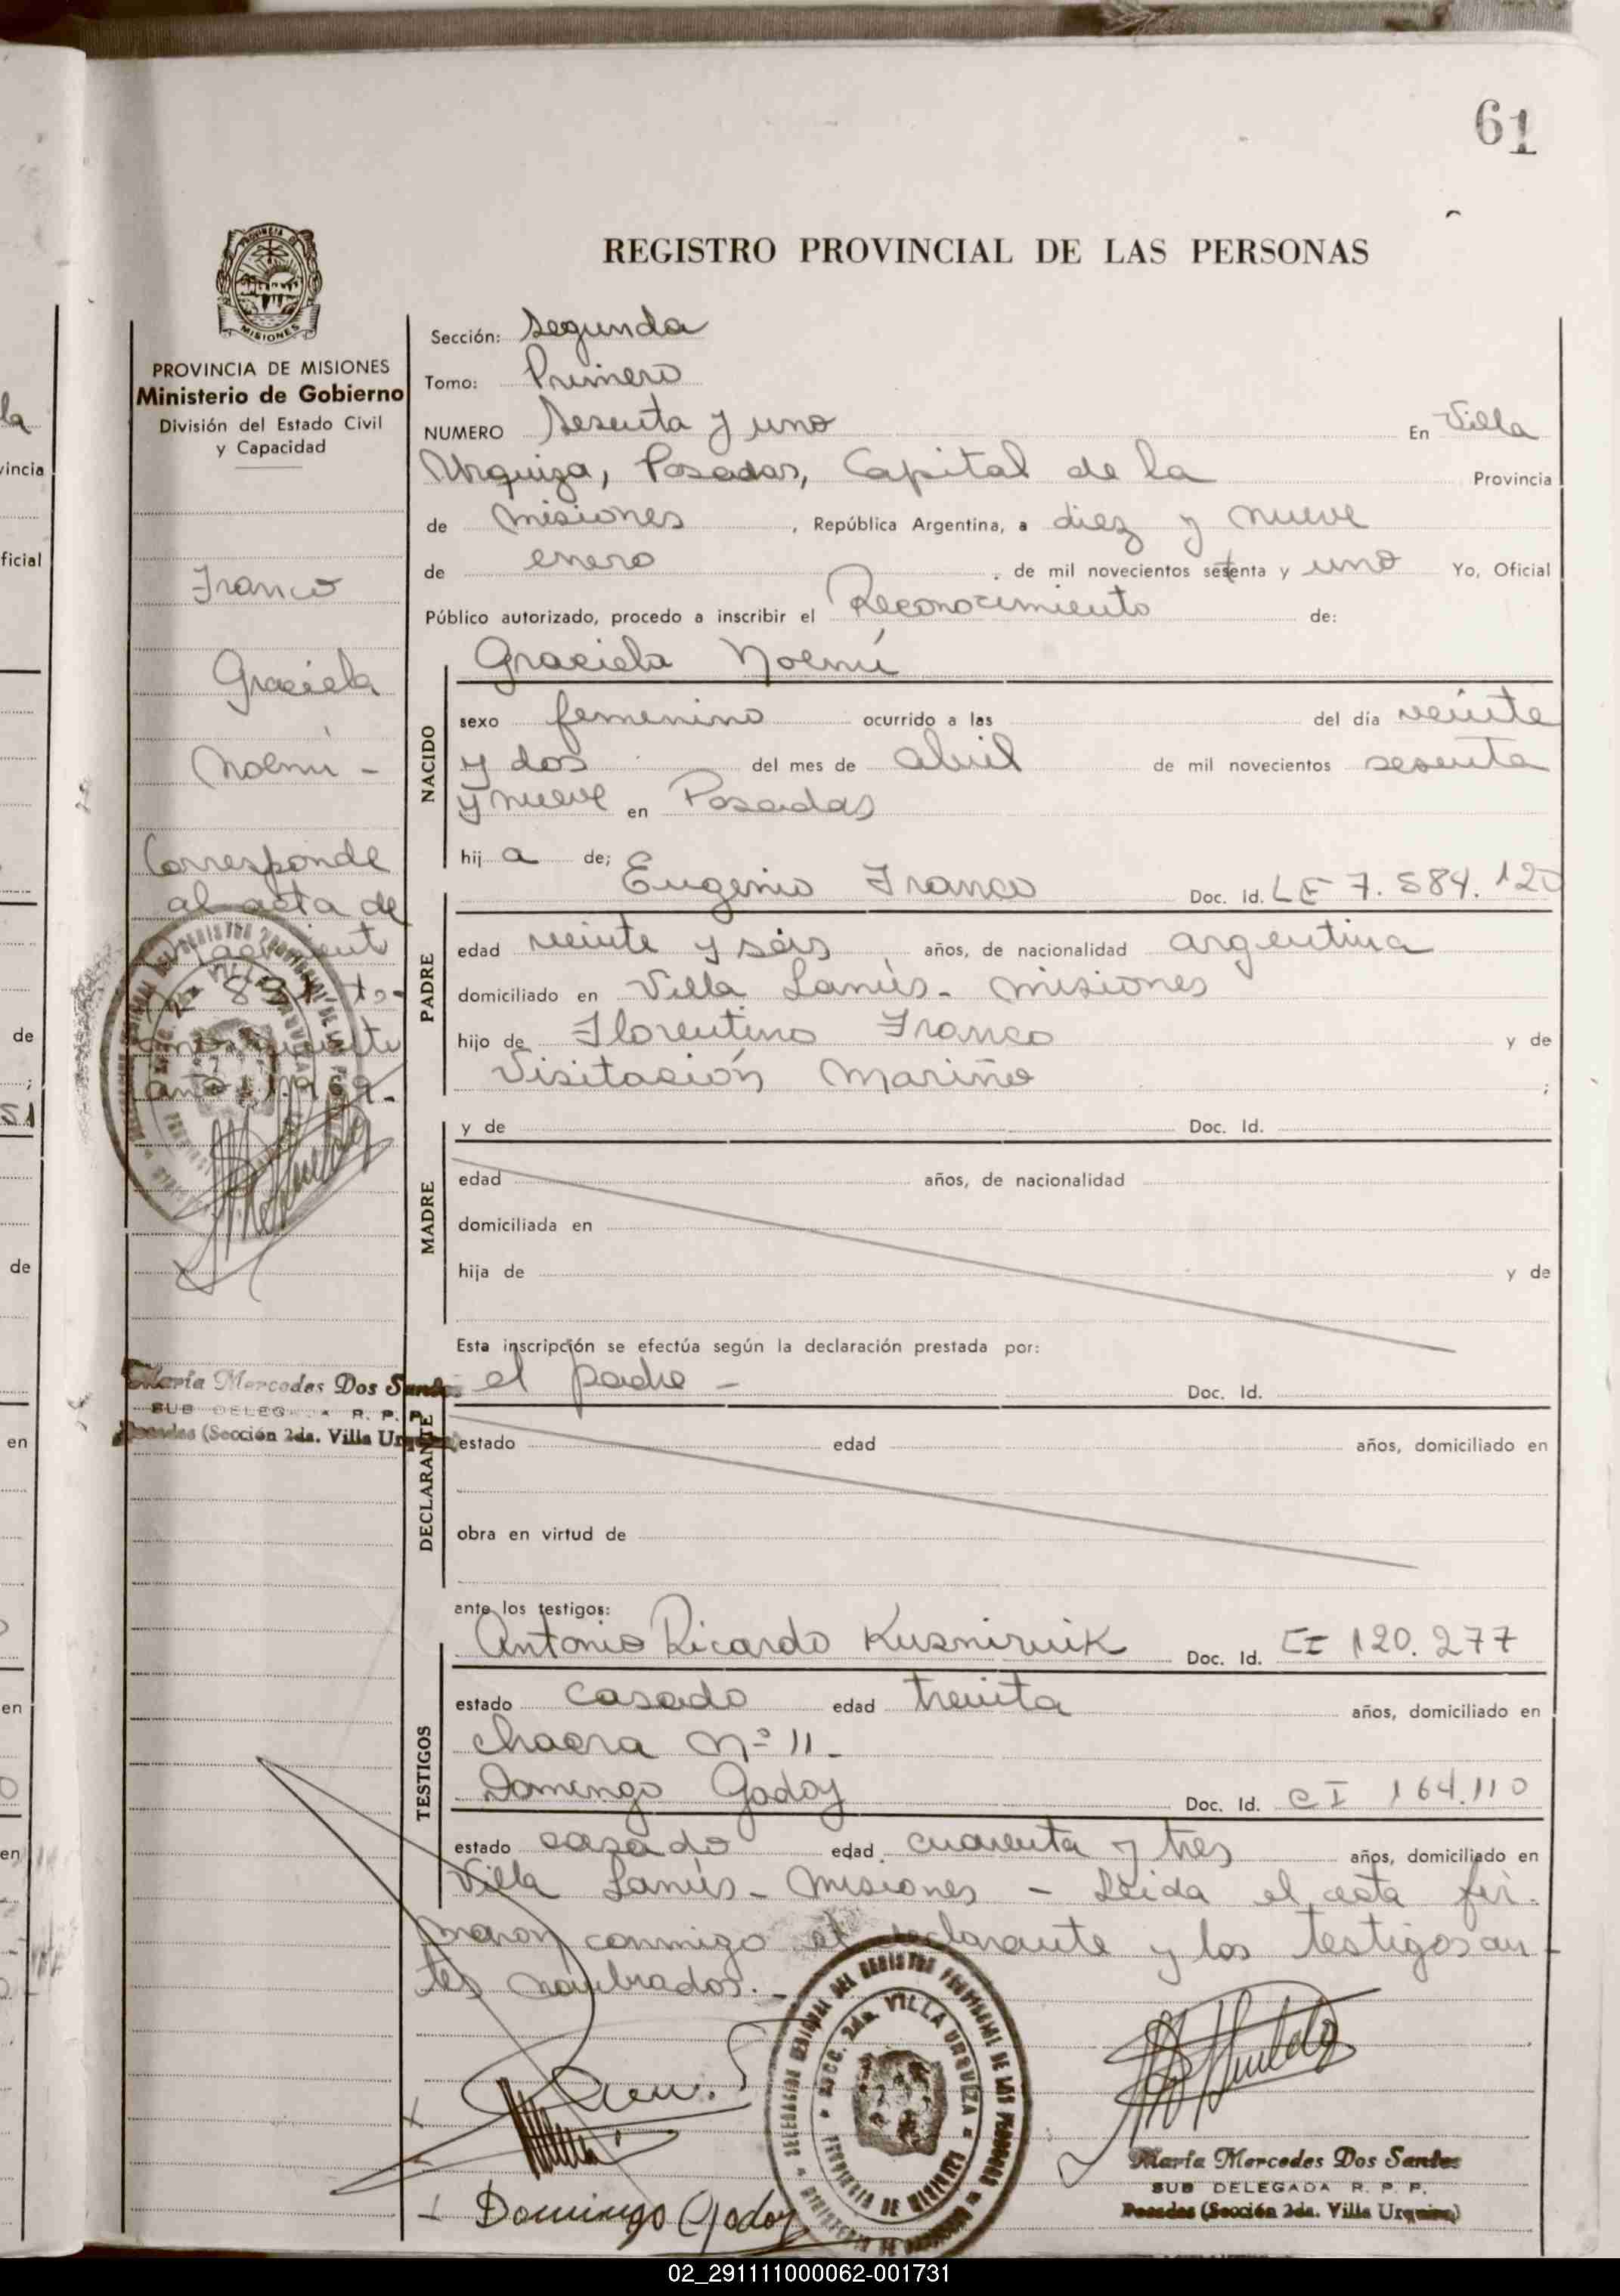 61
REGISTRO PROVINCIAL DE LAS PERSONAS
PROVINCIA DE MISIONES
Ministerio de Gobierno
División del Estado Civil
y Capacidad
Franco
Graciela
Noemí -
Corresponde
al acta de
año 1969.
María Mercedes Dos Santos
SUB DELEGADA R. P. P.
Posadas (Sección 2da. Villa Urquiza)
Sección: Segunda
Tomo: Primero
NUMERO Sesenta y uno En Villa
Urquiza, Posadas, Capital de la Provincia
de Misiones, República Argentina, a diez y nueve
de enero de mil novecientos setenta y uno Yo, Oficial
Público autorizado, procedo a inscribir el Reconocimiento de:
Graciela Noemí
NACIDO
sexo femenino ocurrido a las del día veinte
y dos del mes de abril de mil novecientos sesenta
y nueve en Posadas
hij a de;
PADRE
Eugenio Franco Doc. Id. LE 7.584.120
edad veinte y séis años, de nacionalidad argentina
domiciliado en Villa Lanús - Misiones
hijo de Florentino Franco y de
Visitación Mariño ;
MADRE
y de Doc. Id.
edad años, de nacionalidad
domiciliada en
hija de y de
Esta inscripción se efectúa según la declaración prestada por:
DECLARANTE
el padre - Doc. Id.
estado edad años, domiciliado en
obra en virtud de
ante los testigos:
TESTIGOS
Antonio Ricardo Doc. Id. CI 120.277
estado casado edad treinta años, domiciliado en
chacra nº 11 -
Domingo Godoy Doc. Id. CI 164.110
estado casado edad cuarenta y tres años, domiciliado en
Villa Lanús - Misiones - Leida el acta fir-
maron conmigo el declarante y los testigos an-
tes nombrados. -
DELEGACION REGIONAL DEL REGISTRO PROVINCIAL DE LAS PERSONAS
SECC. 2da. VILLA URQUIZA
PROVINCIA DE MISIONES
Domingo Godoy
María Mercedes Dos Santos
SUB DELEGADA R. P. P.
Posadas (Sección 2da. Villa Urquiza)
02_291111000062-001731